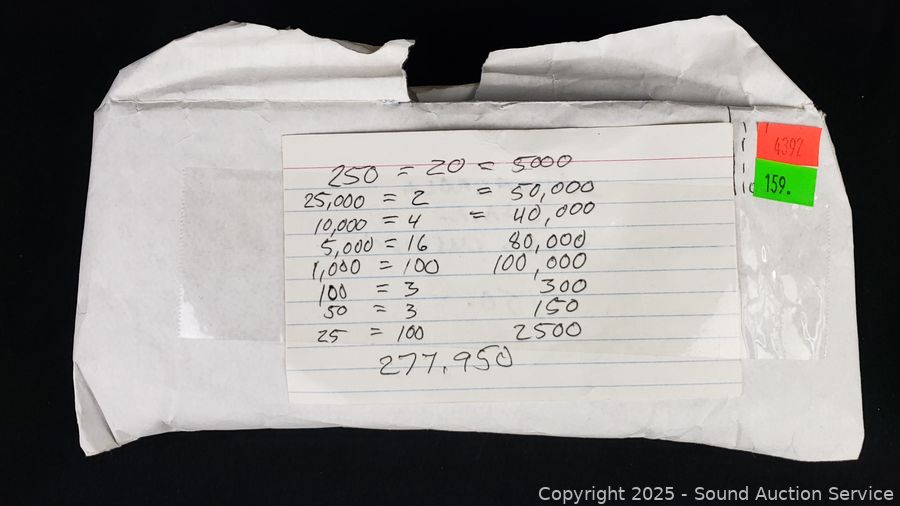 4392
159.
250 = 20 = 5000
25,000 = 2 = 50,000
10,000 = 4 = 40,000
5,000 = 16 80,000
1,000 = 100 100,000
100 = 3 300
50 = 3 150
25 = 100 2500
277.950
Copyright 2025 - Sound Auction Service